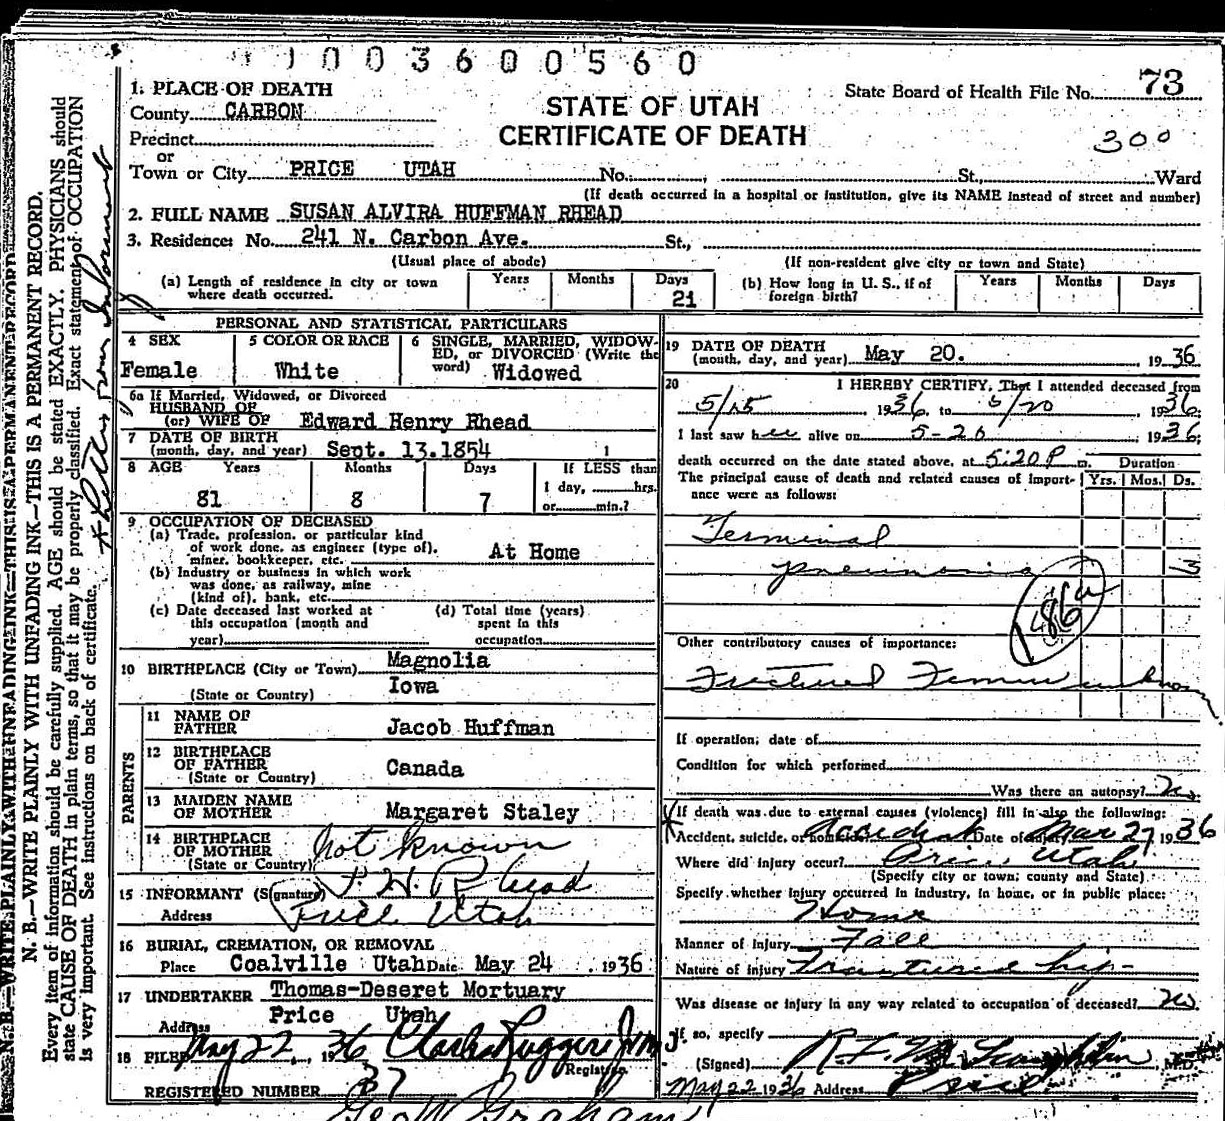 1003600560
1. PLACE OF DEATH
County CARBON
Precinct
or
Town or City PRICE UTAH No. St., Ward
STATE OF UTAH
CERTIFICATE OF DEATH
State Board of Health File No. 73
300
(If death occurred in a hospital or institution, give its NAME instead of street and number)
2. FULL NAME SUSAN ALVIRA HUFFMAN RHEAD
3. Residence: No. 241 N. Carbon Ave. St.,
(Usual place of abode) (If non-resident give city or town and State)
(a) Length of residence in city or town where death occurred. Years Months Days 21
(b) How long in U. S., if of foreign birth? Years Months Days
PERSONAL AND STATISTICAL PARTICULARS
4 SEX Female
5 COLOR OR RACE White
6 SINGLE, MARRIED, WIDOWED, or DIVORCED (Write the word) Widowed
6a If Married, Widowed, or Divorced
HUSBAND OF
(or) WIFE OF Edward Henry Rhead
7 DATE OF BIRTH
(month, day, and year) Sept. 13. 1854
8 AGE Years Months Days If LESS than
81 8 7 1 day, hrs.
or min.?
9 OCCUPATION OF DECEASED
(a) Trade, profession, or particular kind
of work done, as engineer (type of),
miner, bookkeeper, etc. At Home
(b) Industry or business in which work
was done, as railway, mine
(kind of), bank, etc.
(c) Date deceased last worked at
this occupation (month and
year)
(d) Total time (years)
spent in this
occupation
10 BIRTHPLACE (City or Town) Magnolia
(State or Country) Iowa
PARENTS
11 NAME OF
FATHER Jacob Huffman
12 BIRTHPLACE
OF FATHER Canada
(State or Country)
13 MAIDEN NAME
OF MOTHER Margaret Staley
14 BIRTHPLACE
OF MOTHER not known
(State or Country)
15 INFORMANT (Signature) P. H. Rhead
Address Price Utah
16 BURIAL, CREMATION, OR REMOVAL
Place Coalville Utah Date May 24 . 1936
17 UNDERTAKER Thomas-Deseret Mortuary
Address Price Utah
18 FILED May 22, 1936
Registrar
REGISTERED NUMBER 37
Geo W Graham
19 DATE OF DEATH
(month, day, and year) May 20. 1936
20 I HEREBY CERTIFY, That I attended deceased from
5/15 1936, to 5/20, 1936;
I last saw her alive on 5-20 1936;
death occurred on the date stated above, at 5:20 P m. Duration
The principal cause of death and related causes of importance were as follows: Yrs. Mos. Ds.
Terminal
pneumonia 3
186a
Other contributory causes of importance:
Fractured Femur unknown
If operation; date of
Condition for which performed
Was there an autopsy? No
If death was due to external causes (violence) fill in also the following:
Accident, suicide, or homicide? Accident Date of injury Mar 27 1936
Where did injury occur? Price, Utah
(Specify city or town; county and State)
Specify whether injury occurred in industry, in home, or in public place:
Home
Manner of injury Fall
Nature of injury Fractured hip-
Was disease or injury in any way related to occupation of deceased? No
If so, specify
(Signed) M.D.
May 22 1936 Address Price
N. B.—WRITE PLAINLY WITH UNFADING INK—THIS IS A PERMANENT RECORD
N. B.—WRITE PLAINLY WITH UNFADING INK—THIS IS A PERMANENT RECORD.
Every item of information should be carefully supplied. AGE should be stated EXACTLY. PHYSICIANS should
state CAUSE OF DEATH in plain terms, so that it may be properly classified. Exact statement of OCCUPATION
is very important. See Instructions on back of certificate.
* Letter from Informant